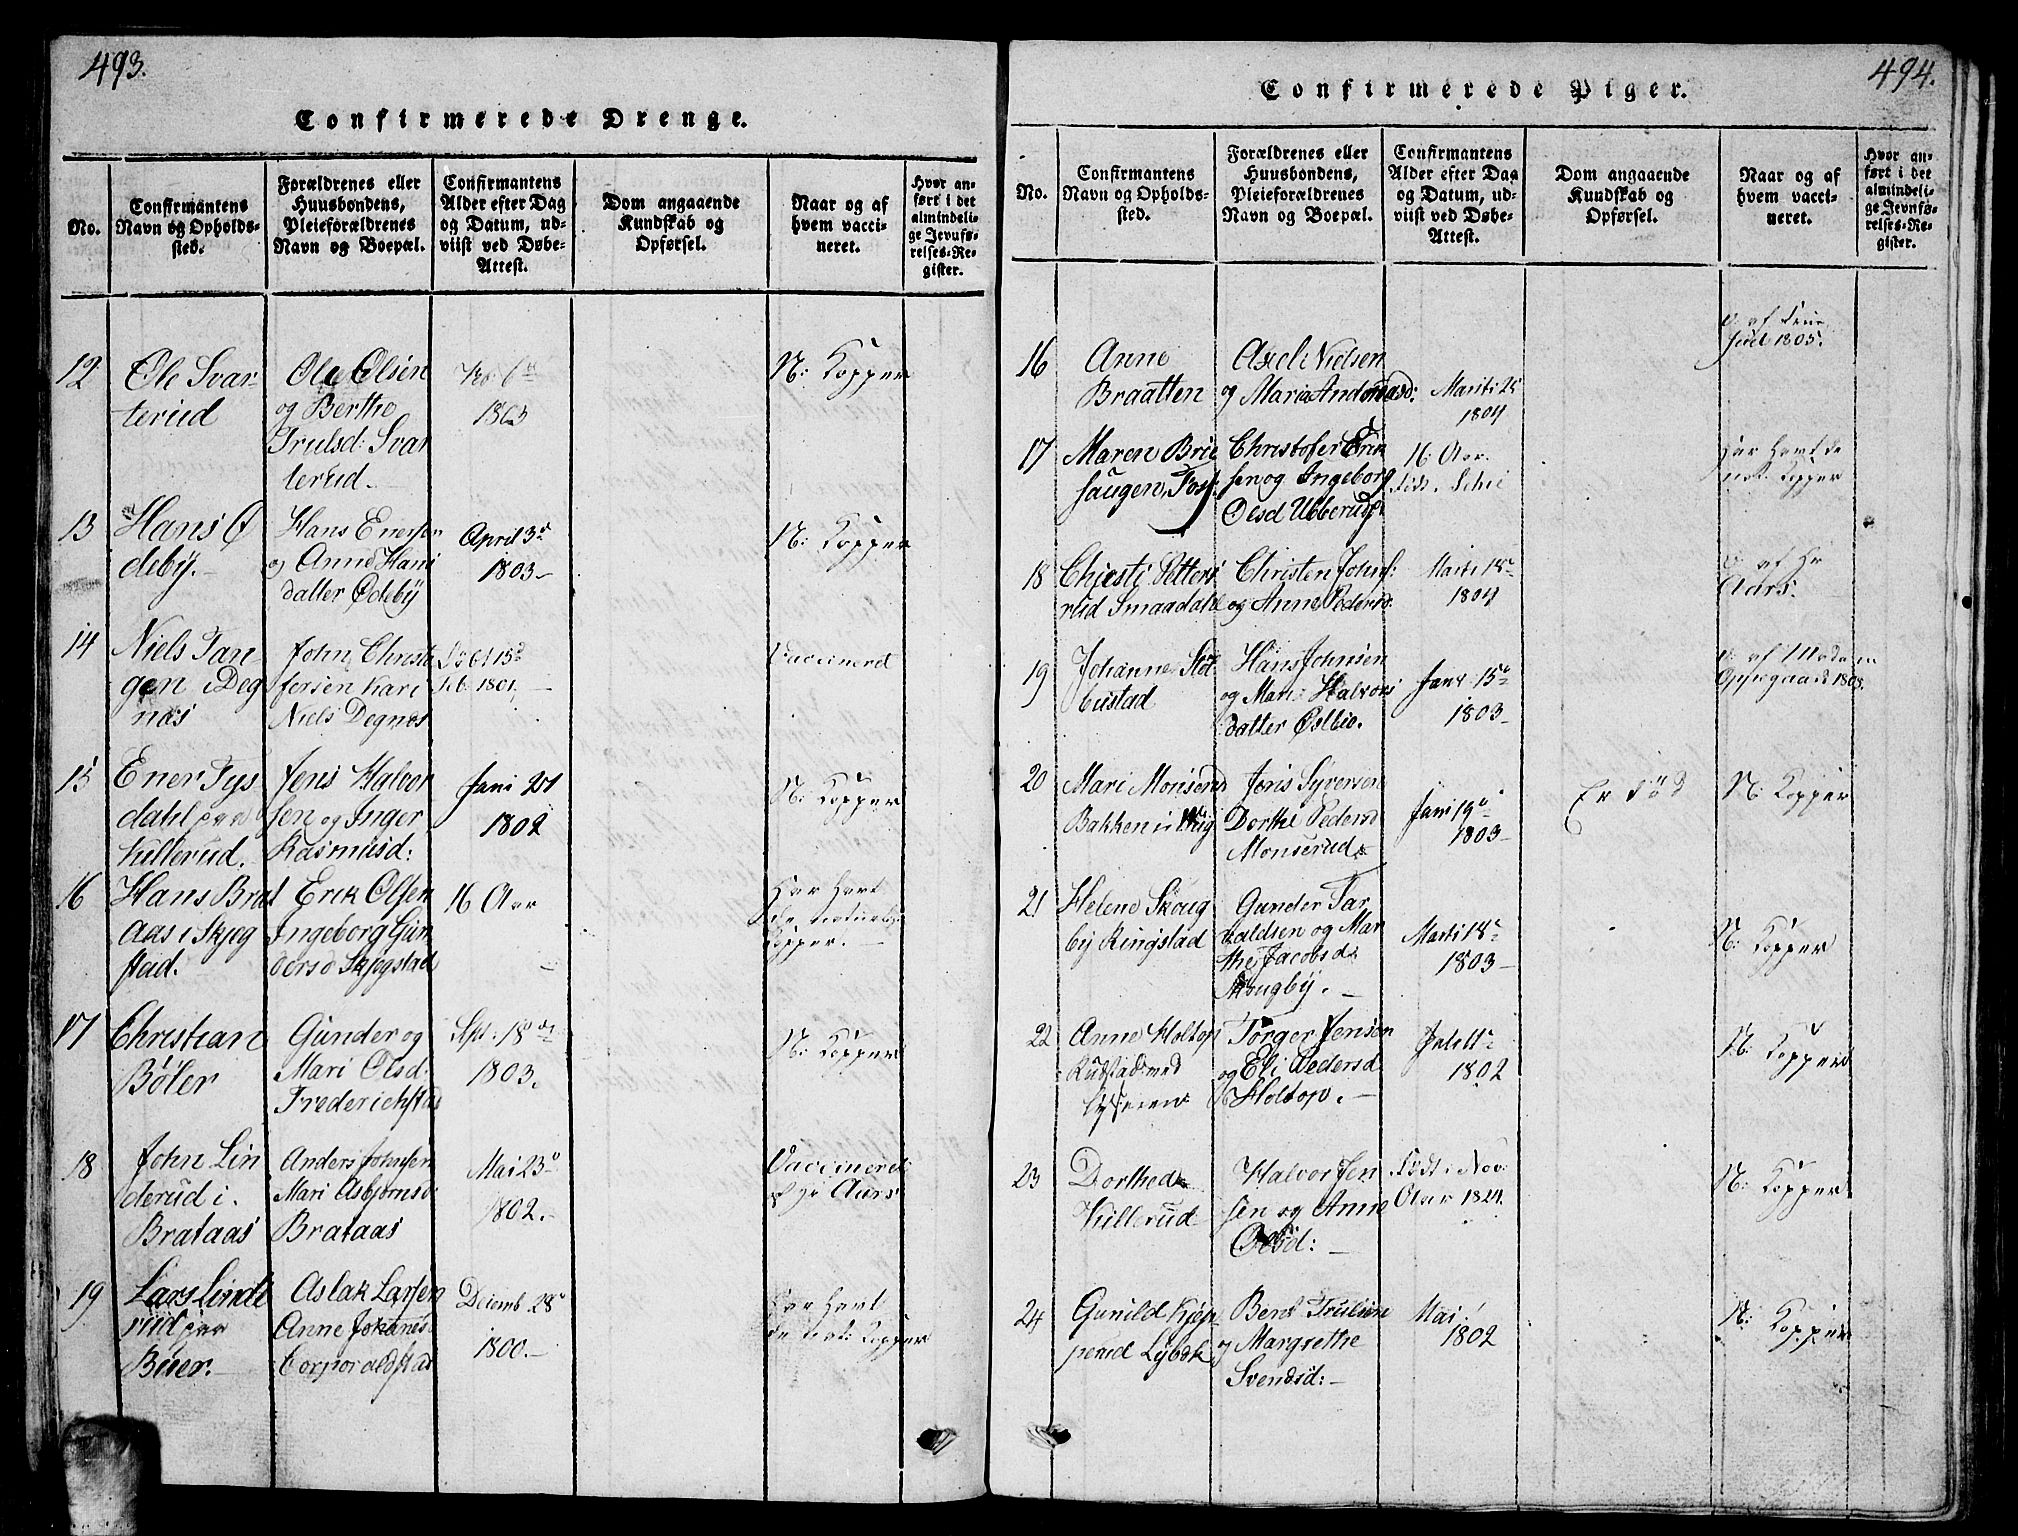 493.
Confirmerede Drenge.
No.
Confirmantens
Navn og Opholds-
sted.
Forældrenes eller
Huusbondens,
Pleieforældrenes
Navn og Boepæl.
Confirmantens
Alder efter Dag
og Datum, ud-
viist ved Døbe-
Attest.
Dom angaaende
Kundskab og
Opførsel.
Naar og af
hvem vacci-
neret.
Hvor an-
ført i det
almindeli-
ge Jevnfø-
relses-Re-
gister.
12
Ole Svar-
terud
Ole Olsen
og Berthe
Trulsd: Svar
terud.
1803
N: Kopper
13
Hans Ø
deby.
Hans Enersen
og Anne Hans
datter Ødeby
April 3d
1803
N: Kopper
14
Niels Tan-
gen i Deg
næs
John Christi
fersen Kari
Niels Degnæs
1801
Vaccineret
15
Ener Tys
dahl paa
Killerud.
Jens Halvor
sen og Inger
Rasmusd:
Jani 21
1802
N: Kopper
16
Hans Brat
Aas i Skjeg
stad.
Erik Olsen
Ingeborg Gun
dersd Skjegstad
16 Aar
Har havt
de naturlige
Kopper.
17
Christian
Böler
Gunder og
Mari Olsd.
Frederichstad
Sept: 18
1803.
N: Kopper
18
John Lin
derud i
Brataas
Anders Johnsen
Mari Asbjørnsd
Brataas
Mai 23
1802.
Vaccineret
af Hr Aars
19
Lars Linde
rud paa
Buer.
Aslak Larsen
Anne Johanes
Corporaldstad
Decemb. 28
1800.
Har havt
de nat: Kopper
494.
Confirmerede Piger.
No.
Confirmantens
Navn og Opholds-
sted.
Forældrenes eller
Huusbondens,
Pleieforældrenes
Navn og Boepæl.
Confirmantens
Alder efter Dag
og Datum, ud-
viist ved Døbe-
Attest.
Dom angaaende
Kundskab og
Opførsel.
Naar og af
hvem vacci-
neret.
Hvor an-
ført i det
almindeli-
ge Jevnfø-
relses-Re-
gister.
16
Anne
Braatten
Axel Nielsen
og Maria Andreasd:
Marti 25
1804
af Frue
Juel 1805.
17
Maren Brie
haugen, Foss
Christofer Erik
sen og Ingeborg
Olsd Ubberud
16 Aar.
Har havt de
nat. Kopper
18
Chiesti Petters
rud Smaadahl
Christen Johns:
og Anne Pedersd:
Marti 18
1804
af Hr
Aars.
19
Johanne Stol
bustad
Hans Johnsen
og Mari Halvors
datter Østbie.
Janr 15
1803
af Madam
Oppegaard 1808.
20
Mari Monserud
Bakken i
Joris Syversen
Dorthe Pedersd
Monserud
Jani 19
1803
Er død
N: Kopper
21
Helene Skoug
by Ringstad
Gunder Tar
valdsen og Mar
the Jacobsd:
Skougby.
Marti 18
1803
N: Kopper
22
Anne Holtop
Rudstad med
Lysereen
Torger Jensen
og Eli Pedersd
Holtop.
1802
N: Kopper
23
Dorthe
Killerud
Halvor Jen
sen og Anne
Olsd:
Født i Nov:
N: Kopper
24
Gunild Kjep-
perud Lybek
Bent Trulsen
og Margrethe
Svendsd:
Mai
1802
N: Kopper